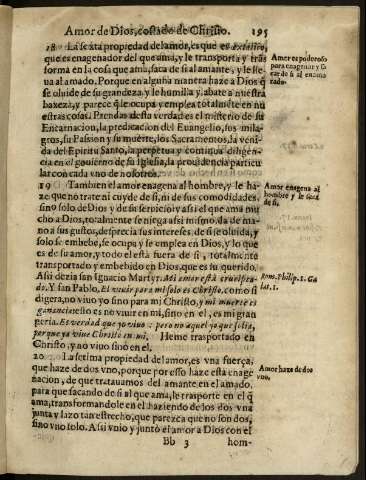 Amor de Dios, costado de Christo. 195
18 La sexta propiedad del amor, es que es extatico,
que es enagenador del que ama, y le transporta y tras
forma en la cosa que ama, saca de si al amante, y le lle
ua al amado. Porque en alguna manera haze a Dios q̃
se oluide de su grandeza, y le humilla y abate a nuestra
baxeza, y parece q̃ le ocupa y emplea totalmẽte en nu
estras cosas. Prendas desta verdad es el misterio de su
Encarnacion, la predicacion del Euangelio, sus mila-
gros, su Passion y su muerte, los Sacramentos, la veni
da del Espiritu Santo, la perpetua y continua diligẽ
cia en el gouierno de su Iglesia, la prouidencia particu
lar con cada vno de nosotros.
19 Tambien el amor enagena al hombre, y le ha-
ze que no trate ni cuyde de si, ni de sus comodidades,
sino solo de Dios y de su seruicio: y assi el que ama mu
cho a Dios, totalmente se niega a si mismo, da de ma-
no a sus gustos, desprecia sus interesses, de si se oluida, y
solo se embebe, se ocupa y se emplea en Dios, y lo que
es de su amor, y todo el està fuera de si, totalmente
transportado y embebido en Dios, que es su querido.
Assi dezia san Ignacio Martyr: Mi amor està crucifica-
do. Y san Pablo, El viuir para mi solo es Christo, como si
digera, no viuo yo sino para mi Christo, y mi muerte es
ganancia: esso es no viuir en mi, sino en el, es mi gran
peria. Es verdad que yo viuo: pero no aquel yo que solia,
porque ya viue Christo en mi. Heme trasportado en
Christo, y no viuo sino en el.
20 La setima propiedad del amor, es vna fuerça,
que haze de dos vno, porque por esso haze esta enage
nacion, de que tratauamos del amante en el amado,
para que sacando de si al que ama, le trasporte en el q̃
ama, transformandole en el, haziendo de los dos vna
junta y lazo tan estrecho, que parezca que no son dos,
sino vno solo. Assi vnio y juntò el amor a Dios con el
Bb 3 hom-
Amor es poderoso
para enagenar y sa
car de si al enamo
rado.
Amor enagena al
hombre y le saca
de si.
Philip. 1. Ga
lat. 2.
Amor haze de dos
vno.